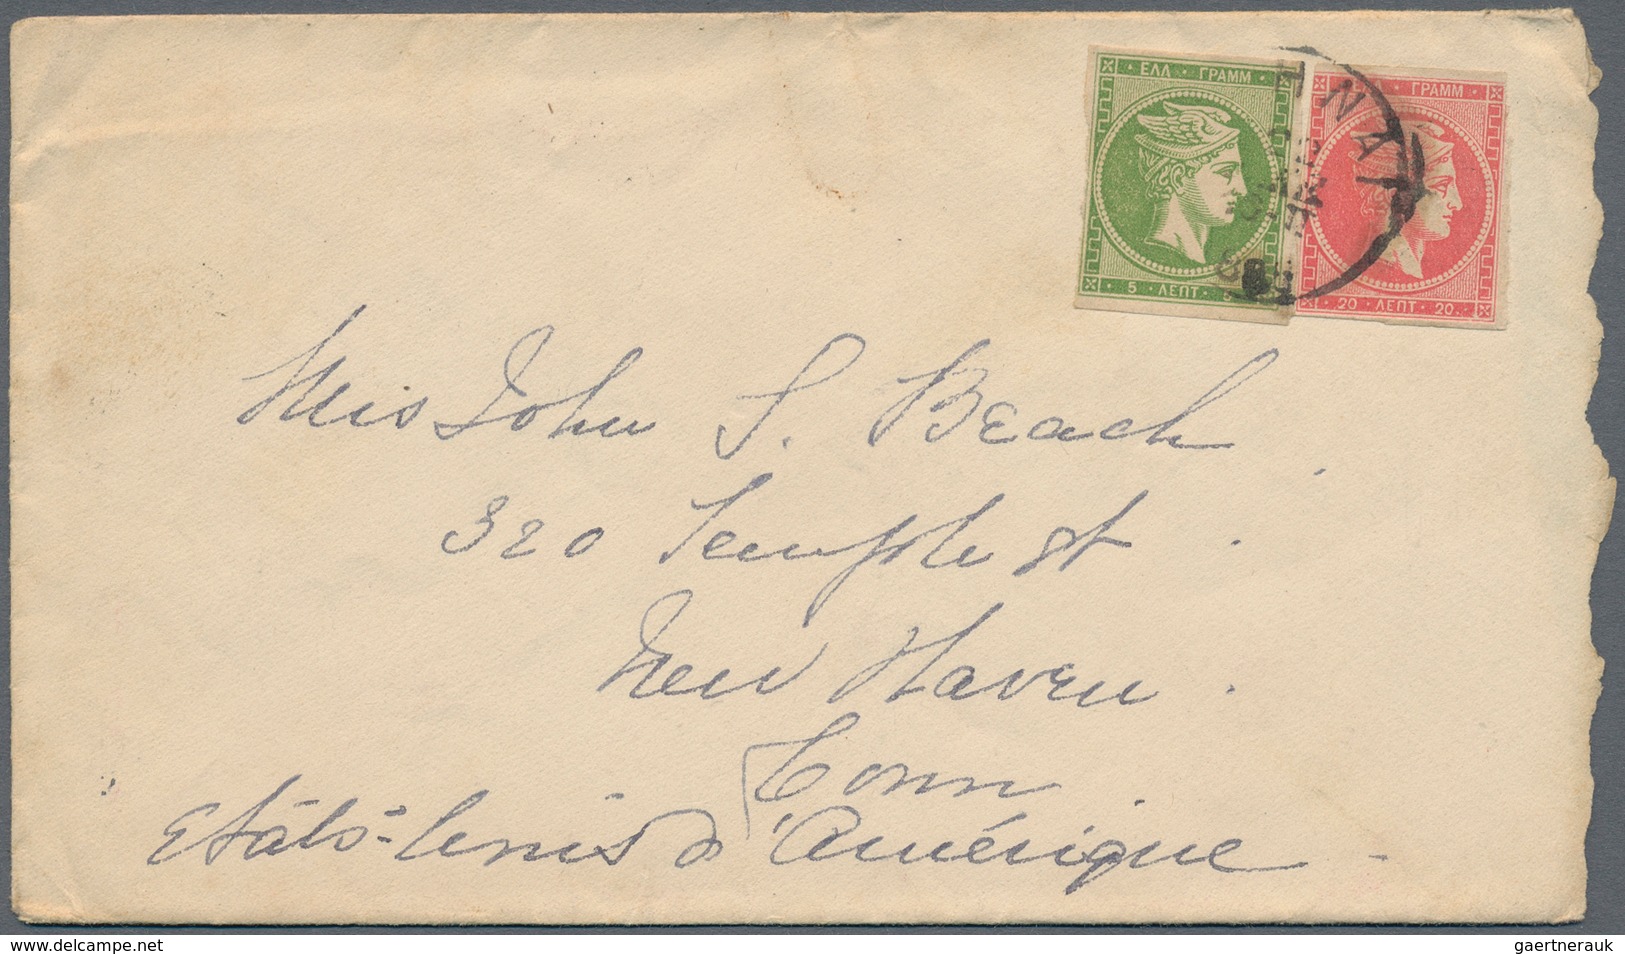 ΕΛΛ · ΓΡΑΜΜ
5 · ΛΕΠΤ · 5
ΓΡΑΜΜ
20 · ΛΕΠΤ · 20
John S. Beach
320 Temple St
New Haven
Conn
Etáts-Unis d'Amérique
delcampe.net
gaertnerauk